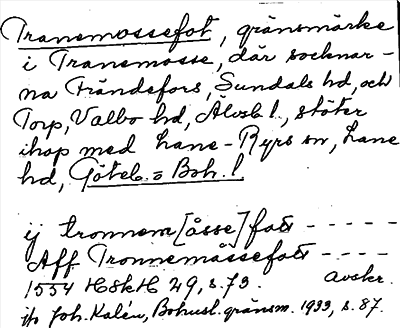 Tranemossefot, gränsmärke
i Tranemosse, där socknar-
na Frändefors, Sundals hd, och
Torp, Valbo hd, Älvsb l., stöter
ihop med Lane-Ryrs sn, Lane
hd, Göteb. o Boh. l
ij tronnem[åsse]fatt - - - - -
Aff Tronnemåssefatt - - - -
1554 HSkH 29, s. 73. avskr.
jfr Joh. Kalén, Bohusl. gränsm. 1933, s. 87.